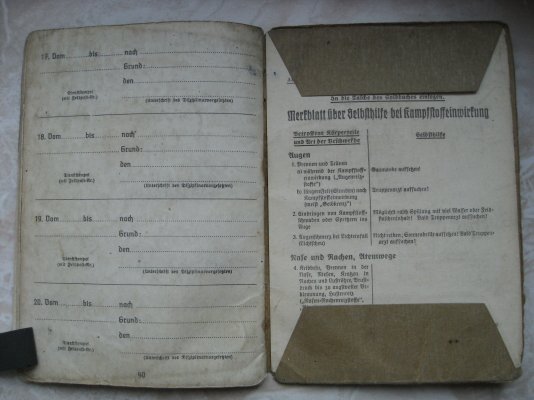 17. Vom bis nach
Grund:
den
Dienststempel
(mit Feldpost-Nr.)
(Unterschrift des Disziplinarvorgesetzten)
18. Vom bis nach
Grund:
den
Dienststempel
(mit Feldpost-Nr.)
(Unterschrift des Disziplinarvorgesetzten)
19. Vom bis nach
Grund:
den
Dienststempel
(mit Feldpost-Nr.)
(Unterschrift des Disziplinarvorgesetzten)
20. Vom bis nach
Grund:
den
Dienststempel
(mit Feldpost-Nr.)
(Unterschrift des Disziplinarvorgesetzten)
In die Tasche des Soldbuches einlegen.
Merkblatt über Selbsthilfe bei Kampfstoffeinwirkung
Betroffene Körperteile
und Art der Beschwerde
Selbsthilfe
Augen
1. Brennen und Tränen
a) während der Kampfstoff-
einwirkung („Augenreiz-
stoffe")
Gasmaske aufsetzen!
nach
Kampfstoffeinwirkung
(meist „Gelbkreuz")
Truppenarzt aufsuchen!
2. Eindringen von Kampfstoff-
schwaden oder Spritzern ins
Auge
Möglichst rasch Spülung mit viel Wasser oder Feld-
Bald Truppenarzt
aufsuchen!
3. Augenschmerz bei Lichteinfall
(Lichtscheu)
Nicht reiben; Sonnenbrille aufsetzen! Bald Truppen-
arzt aufsuchen!
Nase und Rachen, Atemwege
4. Brennen in der
Nase, Niesen, Kratzen in
Rachen und Luftröhre, Brust-
druck bis zu angstvoller Be-
klemmung, Hustenreiz
(„Nasen-Rachenreizstoffe",